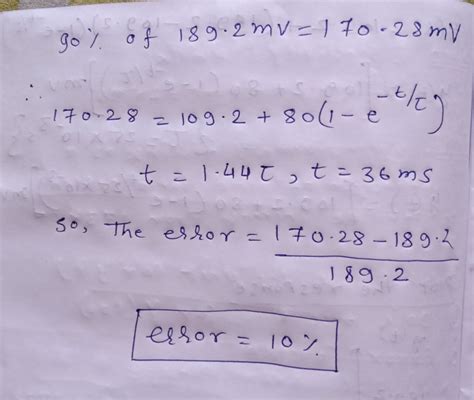 90% of 189.2mV = 170.28mV
∴ 170.28 = 109.2 + 80(1 - e^-t/τ)
t = 1.44τ, t = 36ms
So, The error = 170.28 - 189.2 / 189.2
error = 10%